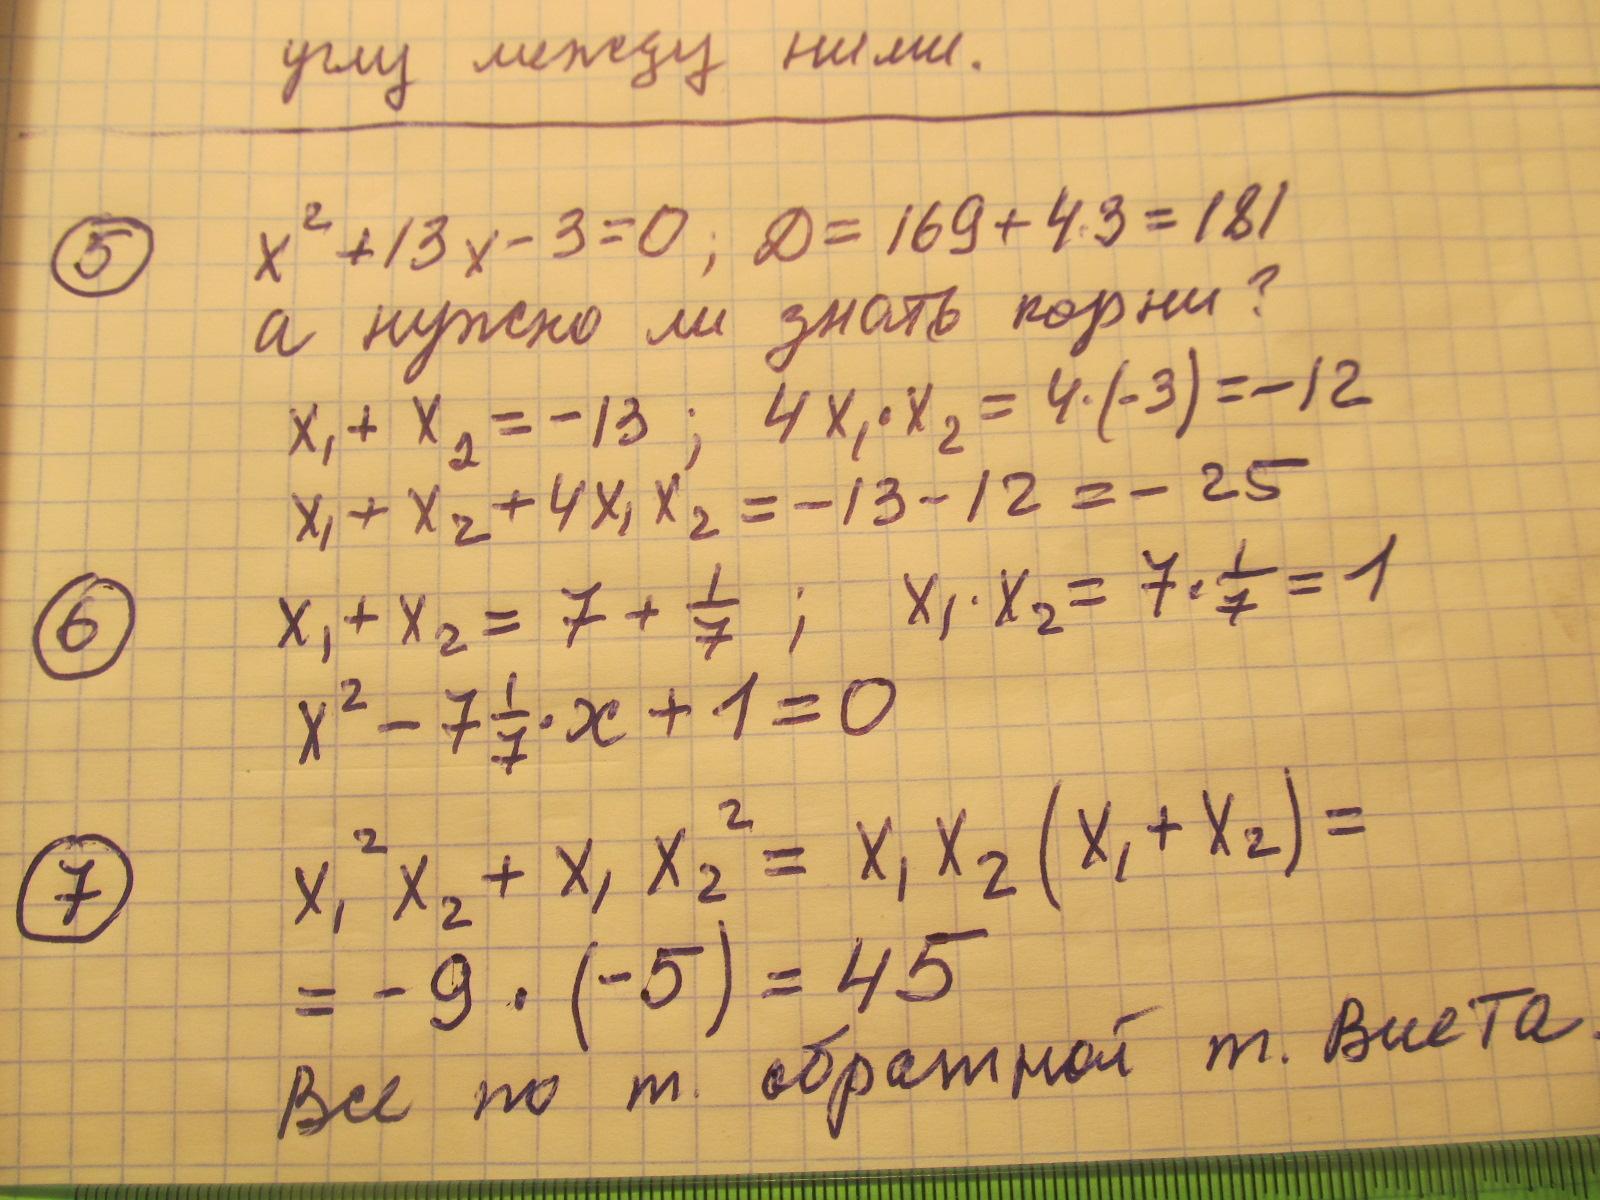 углу между ними.
5 x² + 13x - 3 = 0; D = 169 + 4·3 = 181
а нужно ли знать корни?
x₁ + x₂ = -13; 4x₁·x₂ = 4·(-3) = -12
x₁ + x₂ + 4x₁x₂ = -13 - 12 = - 25
6 x₁ + x₂ = 7 + 1/7; x₁·x₂ = 7·1/7 = 1
x² - 7 1/7·x + 1 = 0
7 x₁²x₂ + x₁x₂² = x₁x₂(x₁ + x₂) =
= -9·(-5) = 45
Все по т. обратной т. Виета.